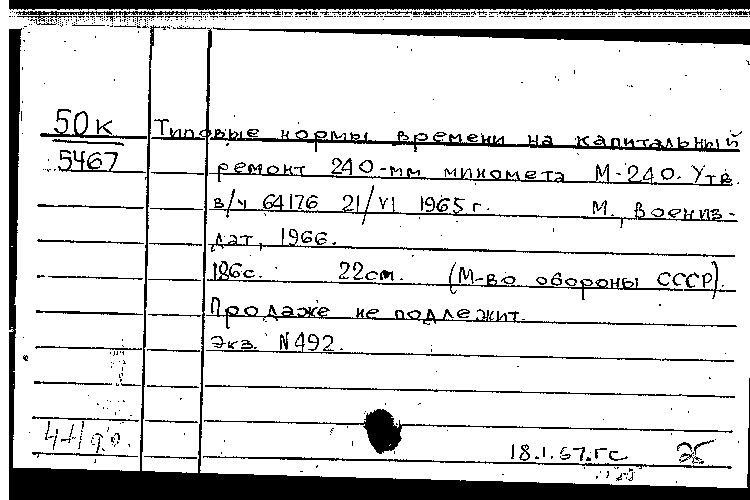 50к Типовые нормы времени на капитальный
5467 ремонт 240-мм миномета М-240. Утв.
в/ч 64176 21/VI 1965г. М., Воениз-
дат, 1966.
186с. 22см. (М-во обороны СССР).
Продаже не подлежит.
Экз. N492.
18.1.67.гс